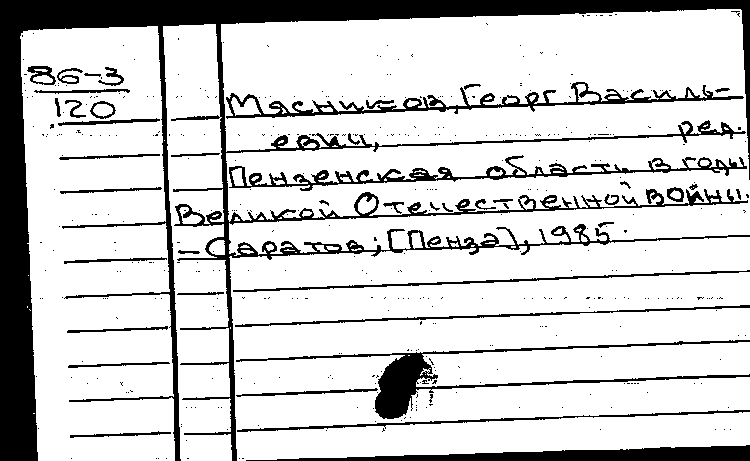 86-3
120
Мясников, Георг Василь-
евич, ред.
Пензенская область в годы
Великой Отечественной войны.
-Саратов; [Пенза], 1985.